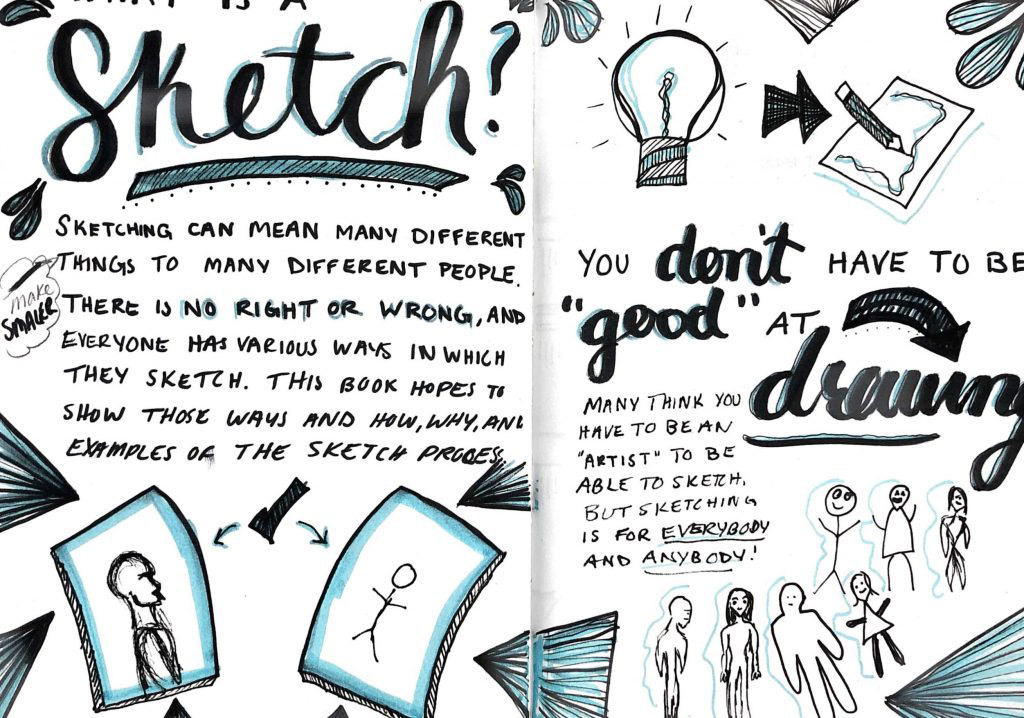 WHAT IS A
Sketch?
SKETCHING CAN MEAN MANY DIFFERENT
THINGS TO MANY DIFFERENT PEOPLE.
THERE IS NO RIGHT OR WRONG, AND
EVERYONE HAS VARIOUS WAYS IN WHICH
THEY SKETCH. THIS BOOK HOPES TO
SHOW THOSE WAYS AND HOW, WHY, AND
EXAMPLES OF THE SKETCH PROCESS.
make
SMALER
YOU don't HAVE TO BE
"good" AT
drawing
MANY THINK YOU
HAVE TO BE AN
"ARTIST" TO BE
ABLE TO SKETCH.
BUT SKETCHING
IS FOR EVERYBODY
AND ANYBODY!